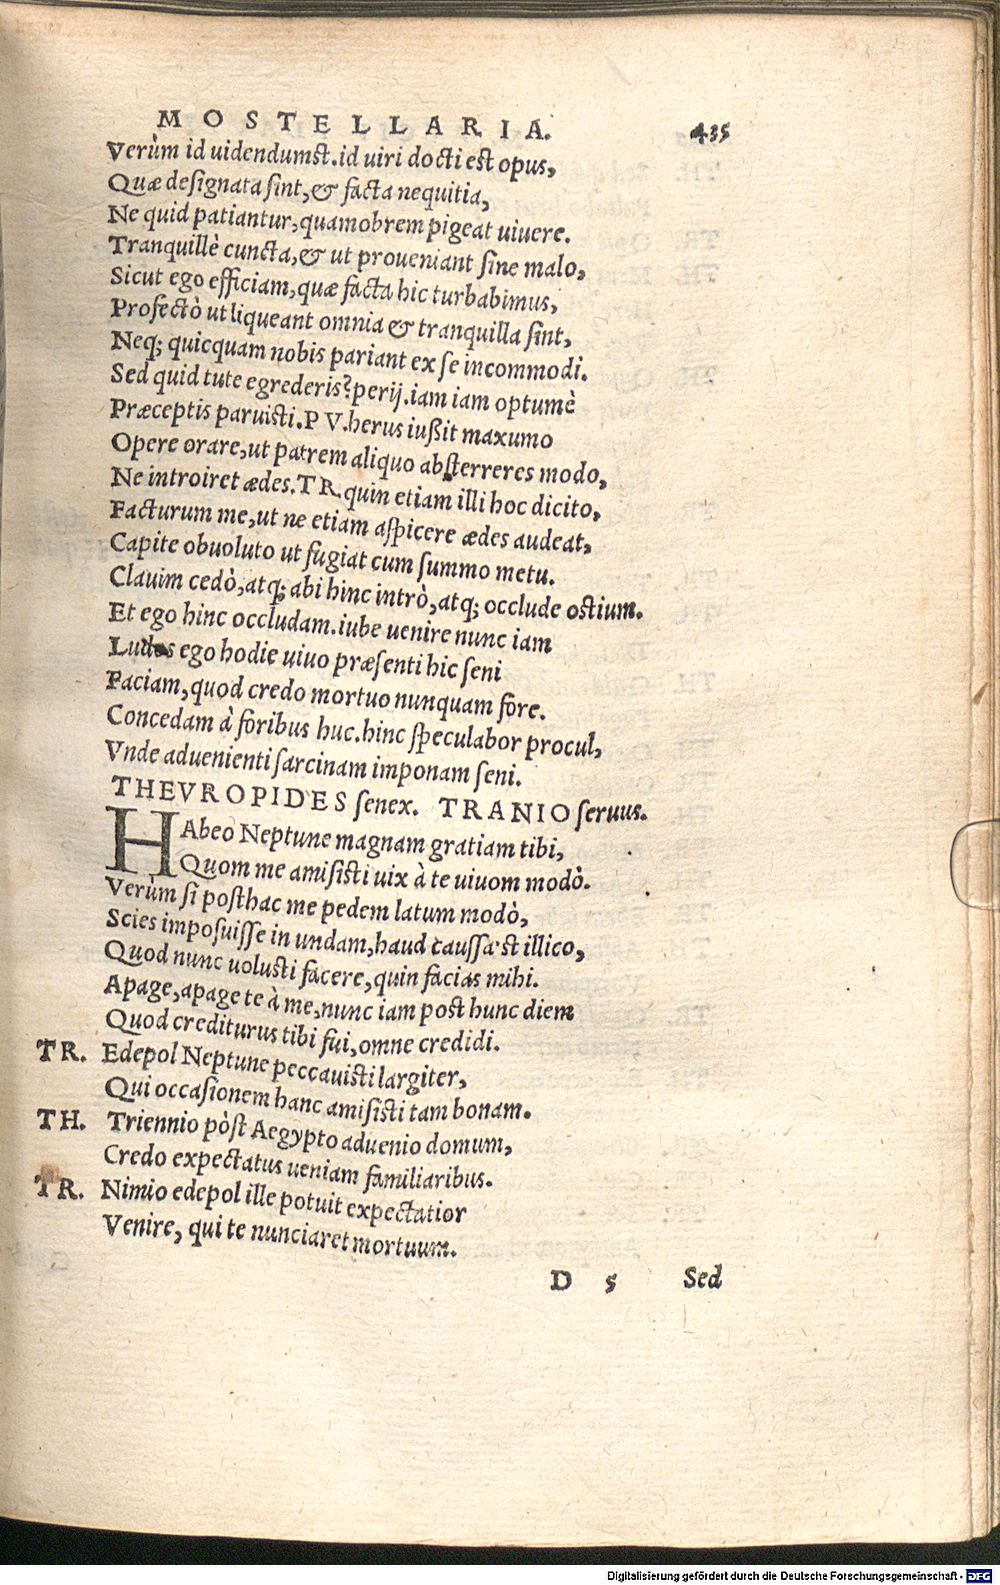 MOSTELLARIA. 435
Verùm id uidendumst. id uiri docti est opus,
Quæ designata sint, & facta nequitia,
Ne quid patiantur, quamobrem pigeat uiuere.
Tranquillè cuncta, & ut proueniant sine malo,
Sicut ego efficiam, quæ facta hic turbabimus,
Profectò ut liqueant omnia & tranquilla sint,
Neq; quicquam nobis pariant ex se incommodi.
Sed quid tute egrederis? perij. iam iam optumè
Præceptis paruisti. PV. herus iußit maxumo
Opere orare, ut patrem aliquo absterreres modo,
Ne introiret ædes. TR. quin etiam illi hoc dicito,
Facturum me, ut ne etiam aspicere ædes audeat,
Capite obuoluto ut fugiat cum summo metu.
Clauim cedò, atq; abi hinc intrò, atq; occlude ostium.
Et ego hinc occludam. iube uenire nunc iam
Ludos ego hodie uiuo præsenti hic seni
Faciam, quod credo mortuo nunquam fore.
Concedam à foribus huc. hinc speculabor procul,
Vnde aduenienti sarcinam imponam seni.
THEVROPIDES senex. TRANIO seruus.
HAbeo Neptune magnam gratiam tibi,
Quom me amisisti uix à te uiuom modò.
Verùm si posthac me pedem latum modò,
Scies imposuisse in undam, haud caussæst illico,
Quod nunc uolusti facere, quin facias mihi.
Apage, apage te à me, nunc iam post hunc diem
Quod crediturus tibi fui, omne credidi.
TR. Edepol Neptune peccauisti largiter,
Qui occasionem hanc amisisti tam bonam.
TH. Triennio pòst Aegypto aduenio domum,
Credo expectatus ueniam familiaribus.
TR. Nimio edepol ille potuit expectatior
Venire, qui te nunciaret mortuum.
D 5 Sed
Digitalisierung gefördert durch die Deutsche Forschungsgemeinschaft - DFG